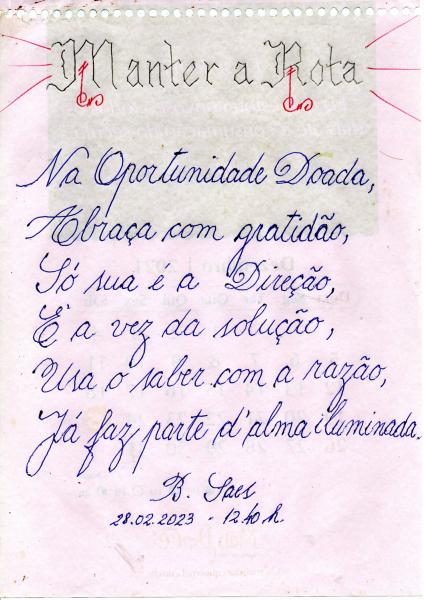 Manter a Rota
Na Oportunidade Doada,
Abraça com gratidão,
Só sua é a Direção,
É a vez da solução,
Usa o saber com a razão,
Já faz parte d'alma iluminada.
B. Saes
28.02.2023 - 12:40 h.